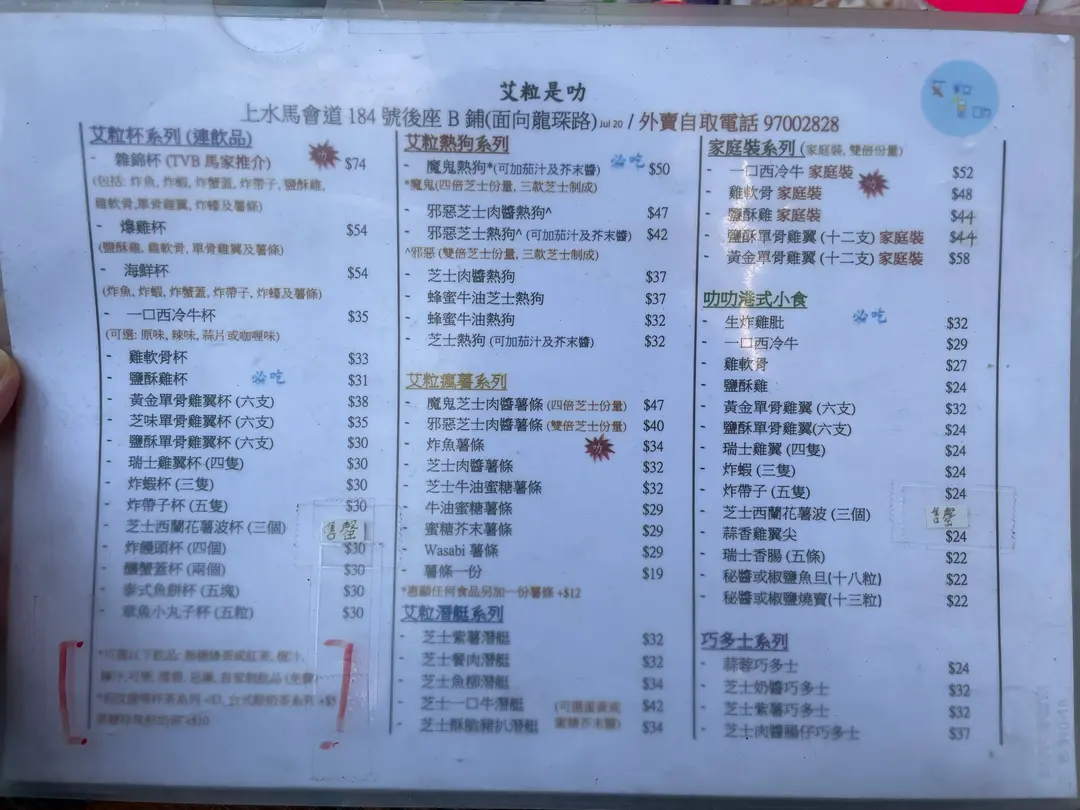 艾粒是叻
上水馬會道 184 號後座 B 鋪(面向龍琛路) Jul 20 / 外賣自取電話 97002828
艾粒杯系列 (連飲品)
- 雜錦杯 (TVB 馬家推介) $74
(包括: 炸魚, 炸蝦, 炸蟹蓋, 炸帶子, 鹽酥雞,
雞軟骨,單骨雞翼, 炸蠔及薯條)
- 爆雞杯 $54
(鹽酥雞, 雞軟骨, 單骨雞翼及薯條)
- 海鮮杯 $54
(炸魚, 炸蝦, 炸蟹蓋, 炸帶子, 炸蠔及薯條)
- 一口西冷牛杯 $35
(可選: 原味, 辣味, 蒜片或咖喱味)
- 雞軟骨杯 $33
- 鹽酥雞杯 必吃 $31
- 黃金單骨雞翼杯 (六支) $38
- 芝味單骨雞翼杯 (六支) $35
- 鹽酥單骨雞翼杯 (六支) $30
- 瑞士雞翼杯 (四隻) $30
- 炸蝦杯 (三隻) $30
- 炸帶子杯 (五隻) $30
- 芝士西蘭花薯波杯 (三個) 售罄
- 炸饅頭杯 (四個) $30
- 釀蟹蓋杯 (兩個) $30
- 泰式魚餅杯 (五塊) $30
- 章魚小丸子杯 (五粒) $30
艾粒熱狗系列
- 魔鬼熱狗*(可加茄汁及芥末醬) 必吃 $50
*魔鬼(四倍芝士份量, 三款芝士制成)
- 邪惡芝士肉醬熱狗^ $47
- 邪惡芝士熱狗^ (可加茄汁及芥末醬) $42
^邪惡 (雙倍芝士份量, 三款芝士制成)
- 芝士肉醬熱狗 $37
- 蜂蜜牛油芝士熱狗 $37
- 蜂蜜牛油熱狗 $32
- 芝士熱狗 (可加茄汁及芥末醬) $32
艾粒瘋薯系列
- 魔鬼芝士肉醬薯條 (四倍芝士份量) $47
- 邪惡芝士肉醬薯條 (雙倍芝士份量) $40
- 炸魚薯條 $34
- 芝士肉醬薯條 $32
- 芝士牛油蜜糖薯條 $32
- 牛油蜜糖薯條 $29
- 蜜糖芥末薯條 $29
- Wasabi 薯條 $29
- 薯條一份 $19
*惠顧任何食品另加一份薯條 +$12
艾粒潛艇系列
- 芝士紫薯潛艇 $32
- 芝士餐肉潛艇 $32
- 芝士魚柳潛艇 $34
- 芝士一口牛潛艇 $42
- 芝士酥脆豬扒潛艇 $34
家庭裝系列 (家庭裝, 雙倍份量)
- 一口西冷牛 家庭裝 $52
- 雞軟骨 家庭裝 $48
- 鹽酥雞 家庭裝 $44
- 鹽酥單骨雞翼 (十二支) 家庭裝 $44
- 黃金單骨雞翼 (十二支) 家庭裝 $58
叻叻港式小食
- 生炸雞肶 必吃 $32
- 一口西冷牛 $29
- 雞軟骨 $27
- 鹽酥雞 $24
- 黃金單骨雞翼 (六支) $32
- 鹽酥單骨雞翼(六支) $24
- 瑞士雞翼 (四隻) $24
- 炸蝦 (三隻) $24
- 炸帶子 (五隻) $24
- 芝士西蘭花薯波 (三個) 售罄
- 蒜香雞翼尖 $24
- 瑞士香腸 (五條) $22
- 秘醬或椒鹽魚旦(十八粒) $22
- 秘醬或椒鹽燒賣(十三粒) $22
巧多士系列
- 蒜蓉巧多士 $24
- 芝士奶醬巧多士 $32
- 芝士紫薯巧多士 $32
- 芝士肉醬腸仔巧多士 $37